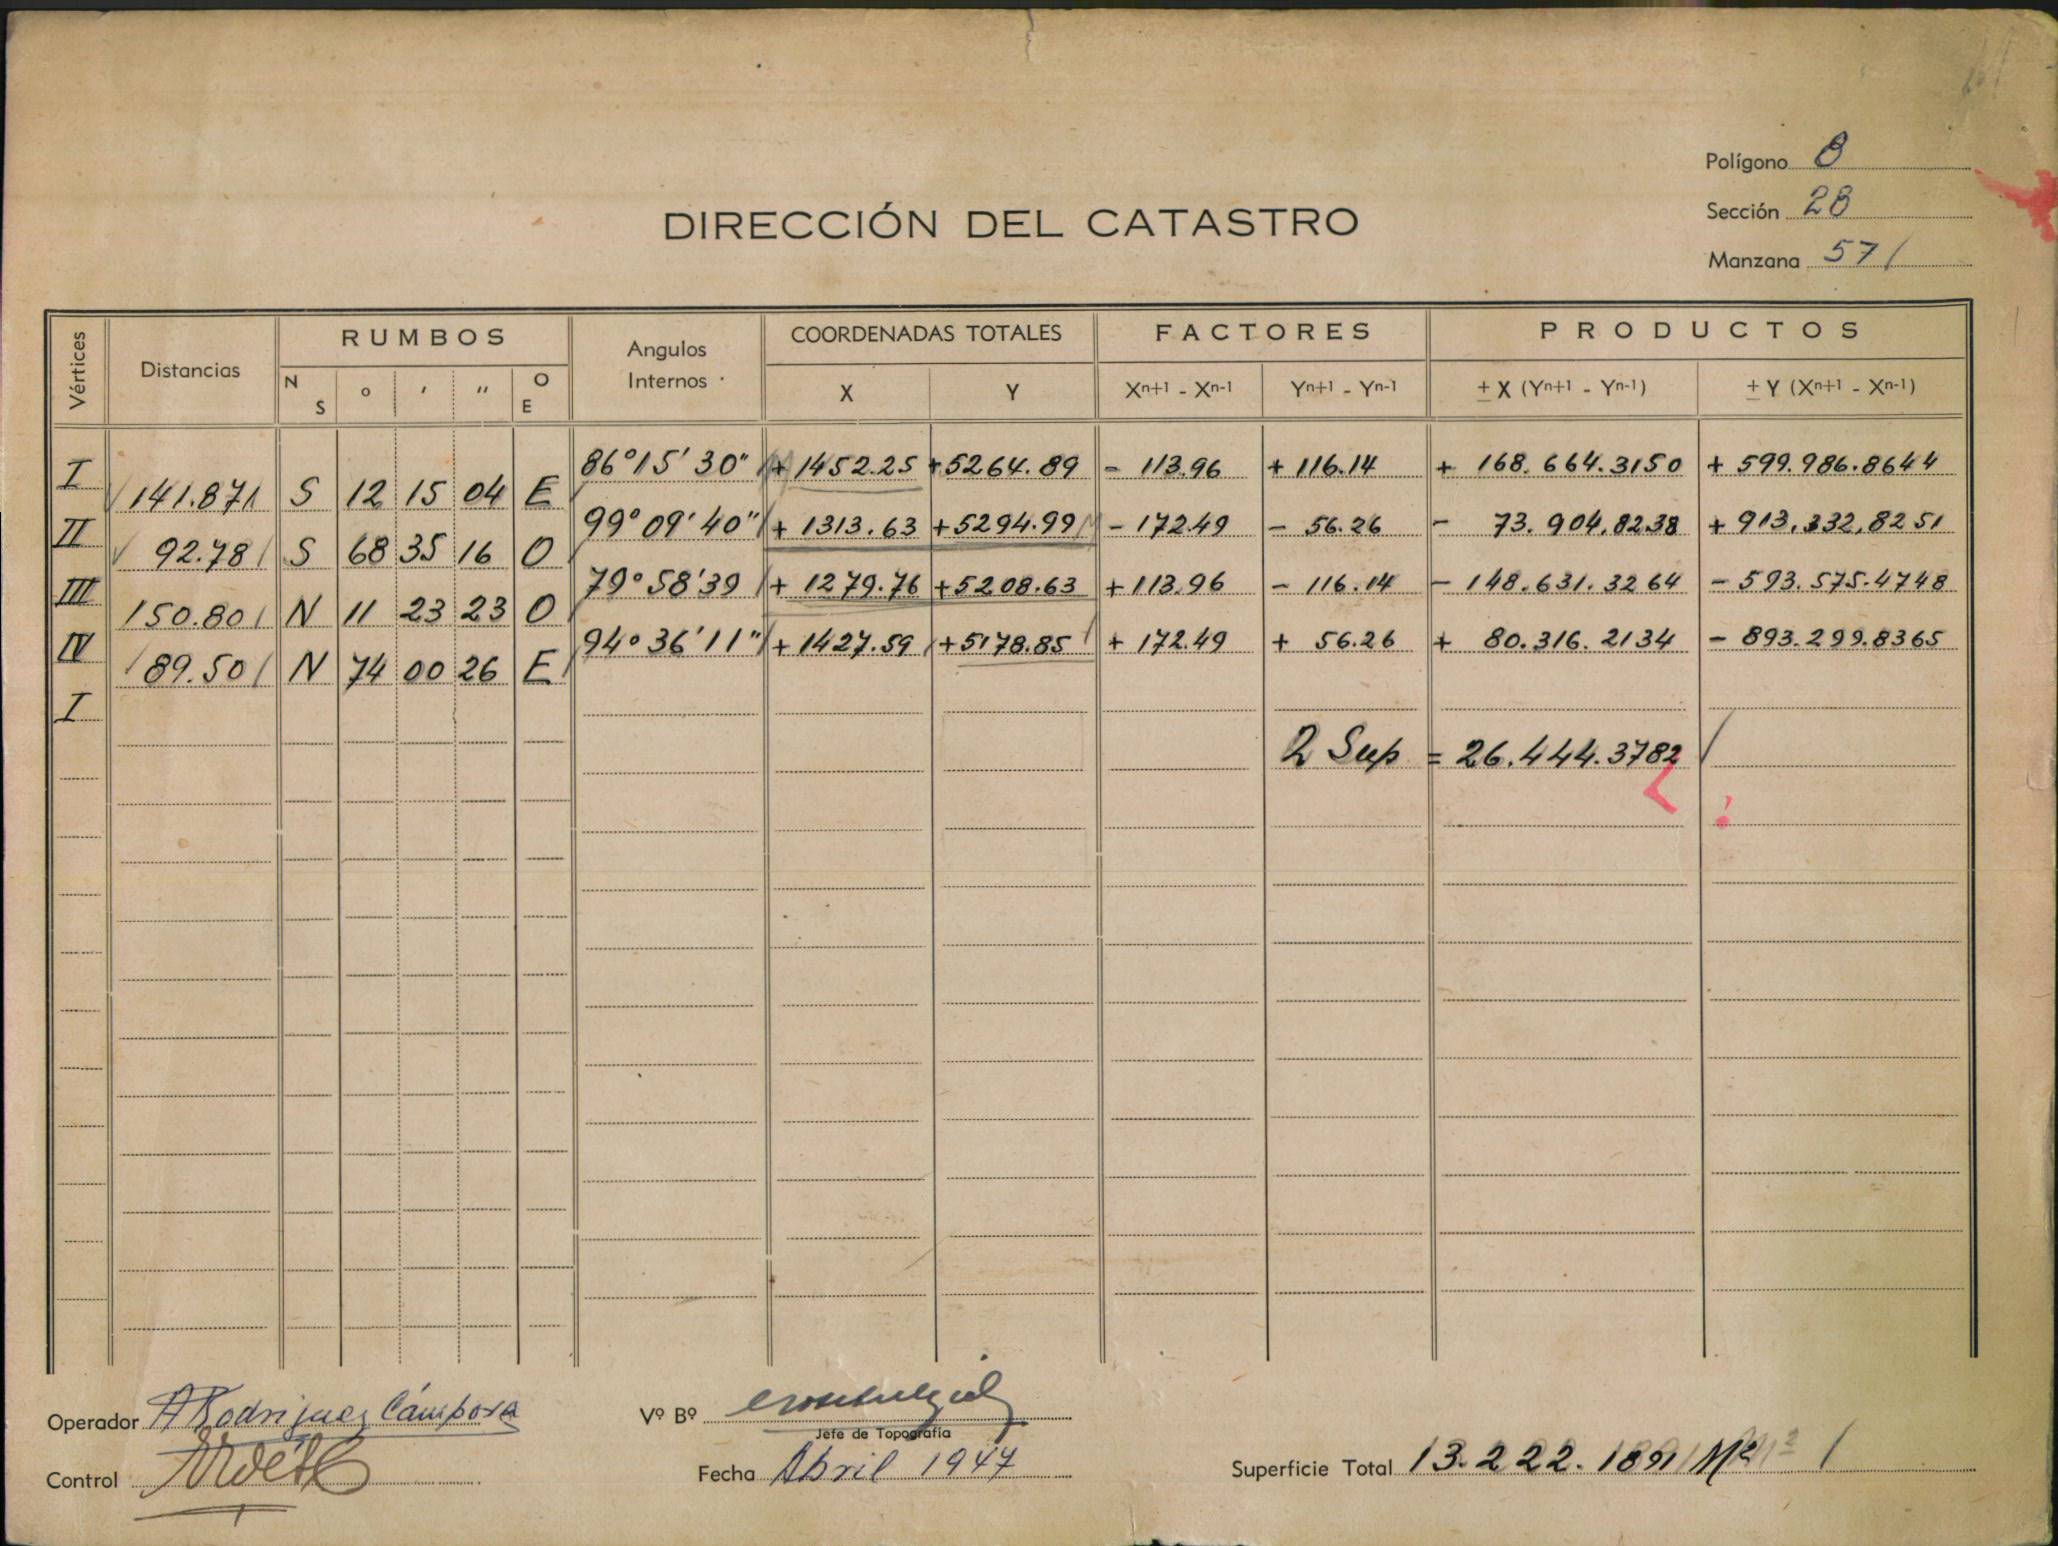 Polígono 8
Sección 28
DIRECCIÓN DEL CATASTRO
Manzana 57
Vértices Distancias RUMBOS Angulos Internos COORDENADAS TOTALES FACTORES PRODUCTOS
N S ° ' " O E X Y Xn+1 - Xn-1 Yn+1 - Yn-1 ± X (Yn+1 - Yn-1) ± Y (Xn+1 - Xn-1)
I 86°15'30" + 1452.25 +5264.89 - 113.96 + 116.14 + 168.664.3150 + 599.986.8644
141.87 S 12 15 04 E
II 99°09'40" + 1313.63 +5294.99 - 172.49 - 56.26 - 73.904,8238 + 913.332,8251
92.78 S 68 35 16 O
III 79°58'39 + 1279.76 +5208.63 +113.96 - 116.14 - 148.631.3264 - 593.575.4748
150.80 N 11 23 23 O
IV 94°36'11" + 1427.59 +5178.85 + 172.49 + 56.26 + 80.316.2134 - 893.299.8365
89.50 N 74 00 26 E
I
2 Sup = 26.444.3782
Operador A Rodriguez Cámpora Vº Bº
Jefe de Topografía
Control Fecha Abril 1947 Superficie Total 13.222.1891 M²